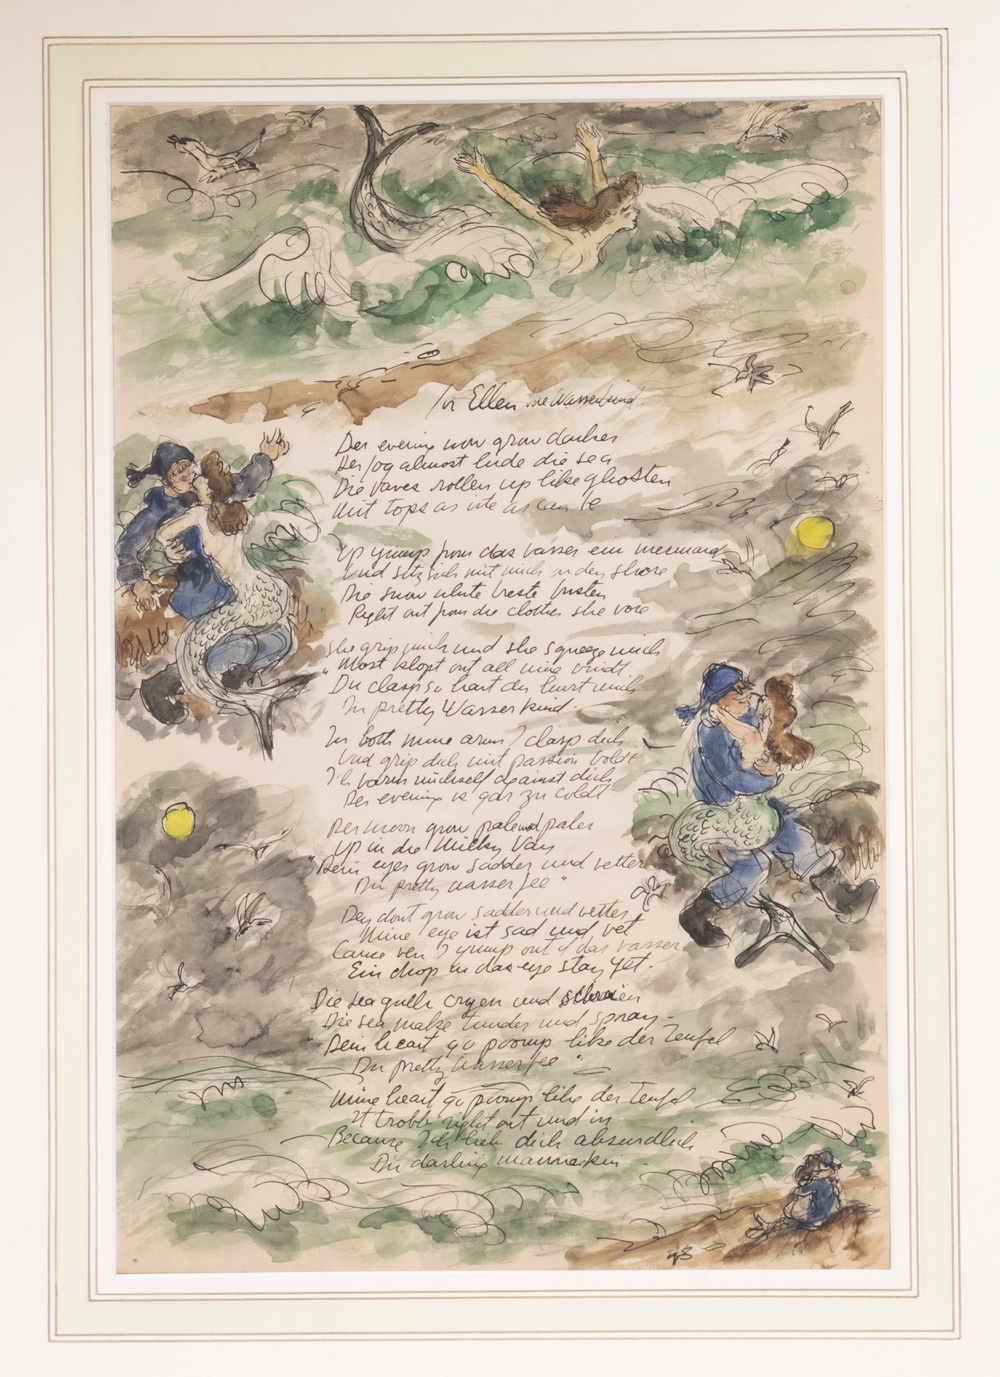 for Ellen the Wasserkind
Der evening now grow darker
Der fog almost hide die sea
Die vaves rollen up like ghosten
Mit tops as vite as can be
Up yump from das vasser ein mermaid
Und sitz sich mit mich on den shore
Die snow white breste bursten
Right out from die clothes she vore
She grip mich und she squeeze mich
"Most klopt out all mine vindt.
Du clasp so hart du hurst mich
Du pretty Wasserkind.
In both mine arms I clasp dich
Und grip dich mit passion boldt
I'll varm michself against dich
Der evening is gar zu coldt
Der moon grow pale und paler
Up in die Milky Vay
"Dein eyes grow sadder und vetter
Du pretty wasserfee"
Dey dont grow sadder und vetter
Mine eye ist sad und vet
Cause ven I yump out of das vasser
Ein drop in das eye stay yet.
Die seagulls cryen und schreien
Die sea make tunder und spray.
"Dein heart go poomp like der Teufel
Du pretty Wasserfee"
Mine heart go poomp like der Teufel
It trobb right out und in
Because Ich lieb dich absurdlich
Du darling mannekin